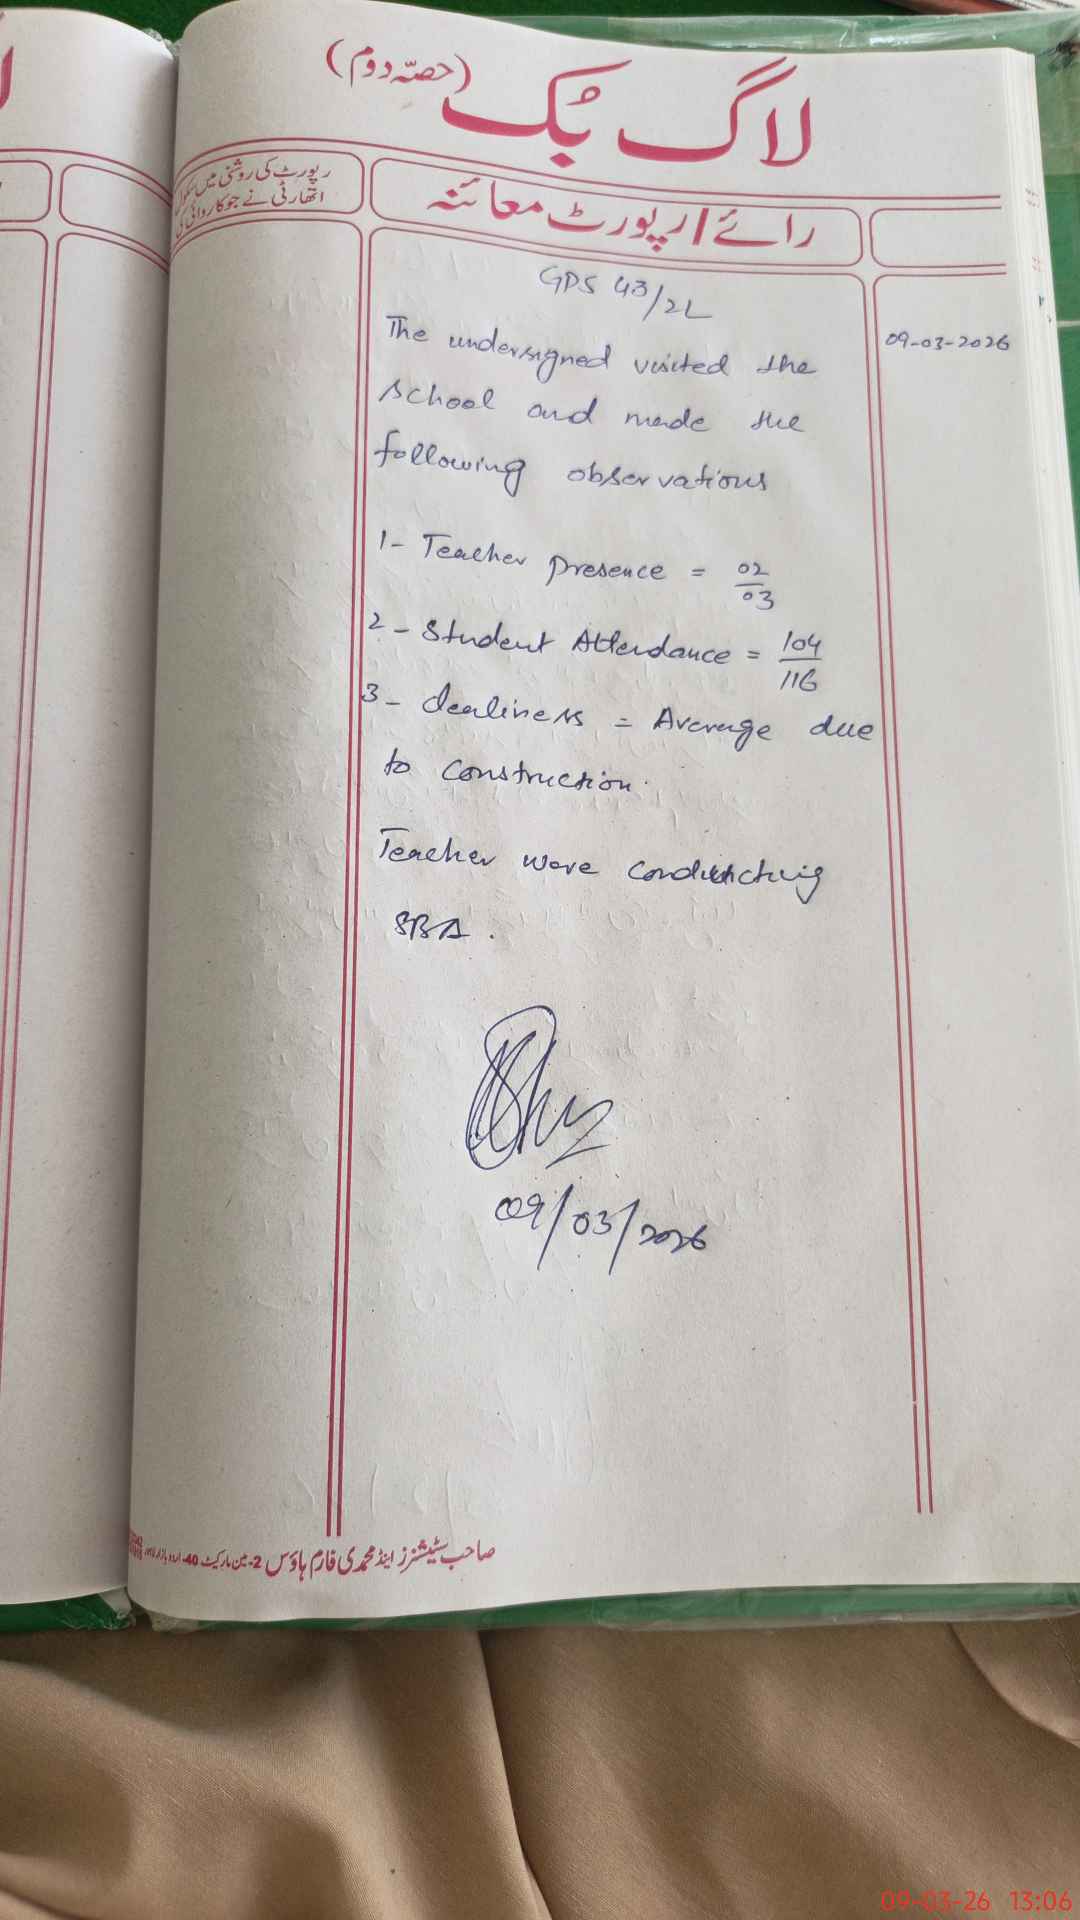 لاگ بُک (حصّہ دوم)
رپورٹ کی روشنی میں سکول
اتھارٹی نے جو کاروائی کی
رائے / رپورٹ معائنہ
GPS 43/2L
09-03-2026
The undersigned visited the
school and made the
following observations
1- Teacher presence = 02/03
2- Student Attendance = 104/116
3- cleanliness = Average due
to construction.
Teacher were conducting
SBA.
09/03/2026
صاحب سٹیشنرز اینڈ محمدی فارم ہاؤس 2-مین مارکیٹ 40-اردو بازار لاہور
09-03-26 13:06